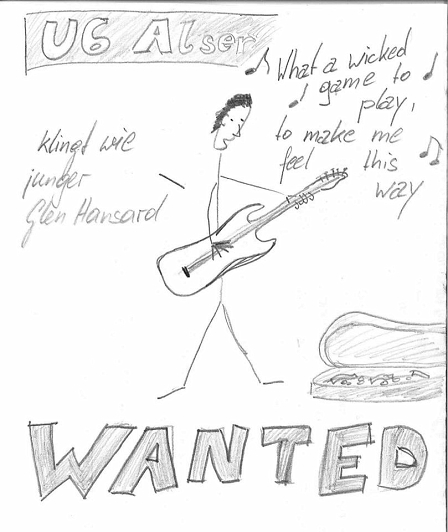 U6 Alser
What a wicked
game to
play,
to make me
feel this
way
klingt wie
junger
Glen Hansard
WANTED